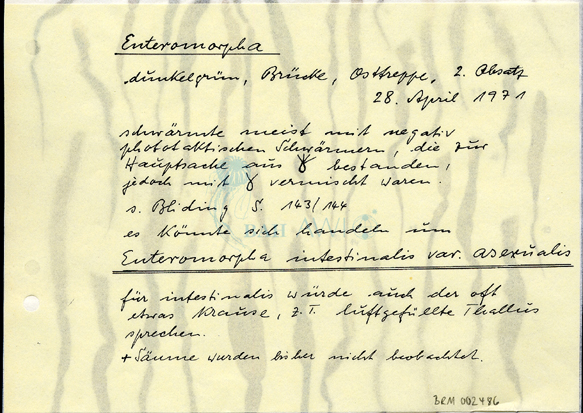 Enteromorpha
dunkelgrün, Brücke, Osttreppe, 2. Absatz
28. April 1971
schwärmte meist mit negativ
phototaktischen Schwärmern, die zur
Hauptsache aus bestanden,
jedoch mit vermischt waren.
s. Bliding S. 143/144
es könnte sich handeln um
Enteromorpha intestinalis var. asexualis
für intestinalis würde auch der oft
etwas krause, z.T. luftgefüllte Thallus
sprechen.
+ Säume wurden bisher nicht beobachtet.
BRM 002486